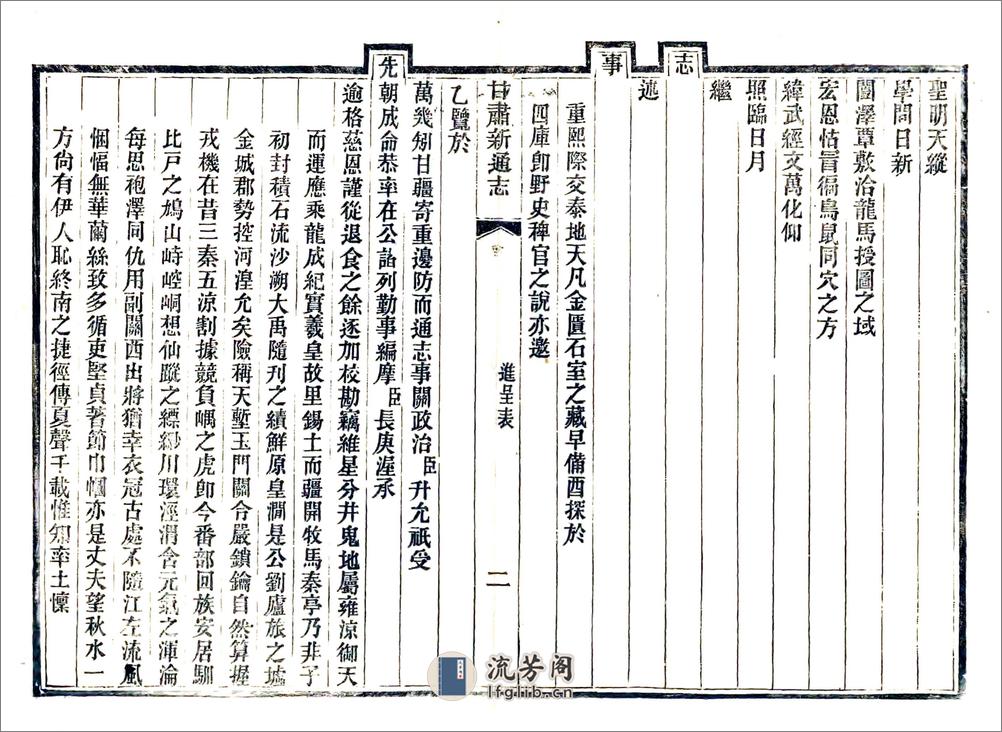 聖明天縱
學問日新
闓澤覃敷洽龍馬授圖之域
宏恩怙冒徧鳥鼠同穴之方
緯武經文萬化仰
照臨日月
繼
志
述
事
重熙際交泰地天凡金匱石室之藏早備酉探於
四庫卽野史稗官之說亦邀
甘肅新通志
進呈表
二
乙覽於
萬幾矧甘疆寄重邊防而通志事關政治臣升允祇受
先朝成命恭率在公詣列勤事編摩臣長庚渥承
逾格慈恩謹從退食之餘逐加校勘竊維星分井鬼地屬雍涼御天
而運應乘龍成紀實羲皇故里錫土而疆開牧馬秦亭乃非子
初封積石流沙溯大禹隨刊之績鮮原皇澗是公劉廬旅之墟
金城郡勢控河湟允矣險稱天塹玉門關令嚴鎖鑰自然算握
戎機在昔三秦五涼割據競負嵎之虎卽今番部回族安居馴
比戶之鳩山峙崆峒想仙蹤之縹緲川環涇渭含元氣之渾淪
每思袍澤同仇用副關西出將猶幸衣冠古處不隨江左流風
悃愊無華蘭絲致多循吏堅貞著節巾幗亦是丈夫望秋水一
方尙有伊人恥終南之捷徑傳夏聲千載惟知率土懍
流芳阁
lfglib.cn